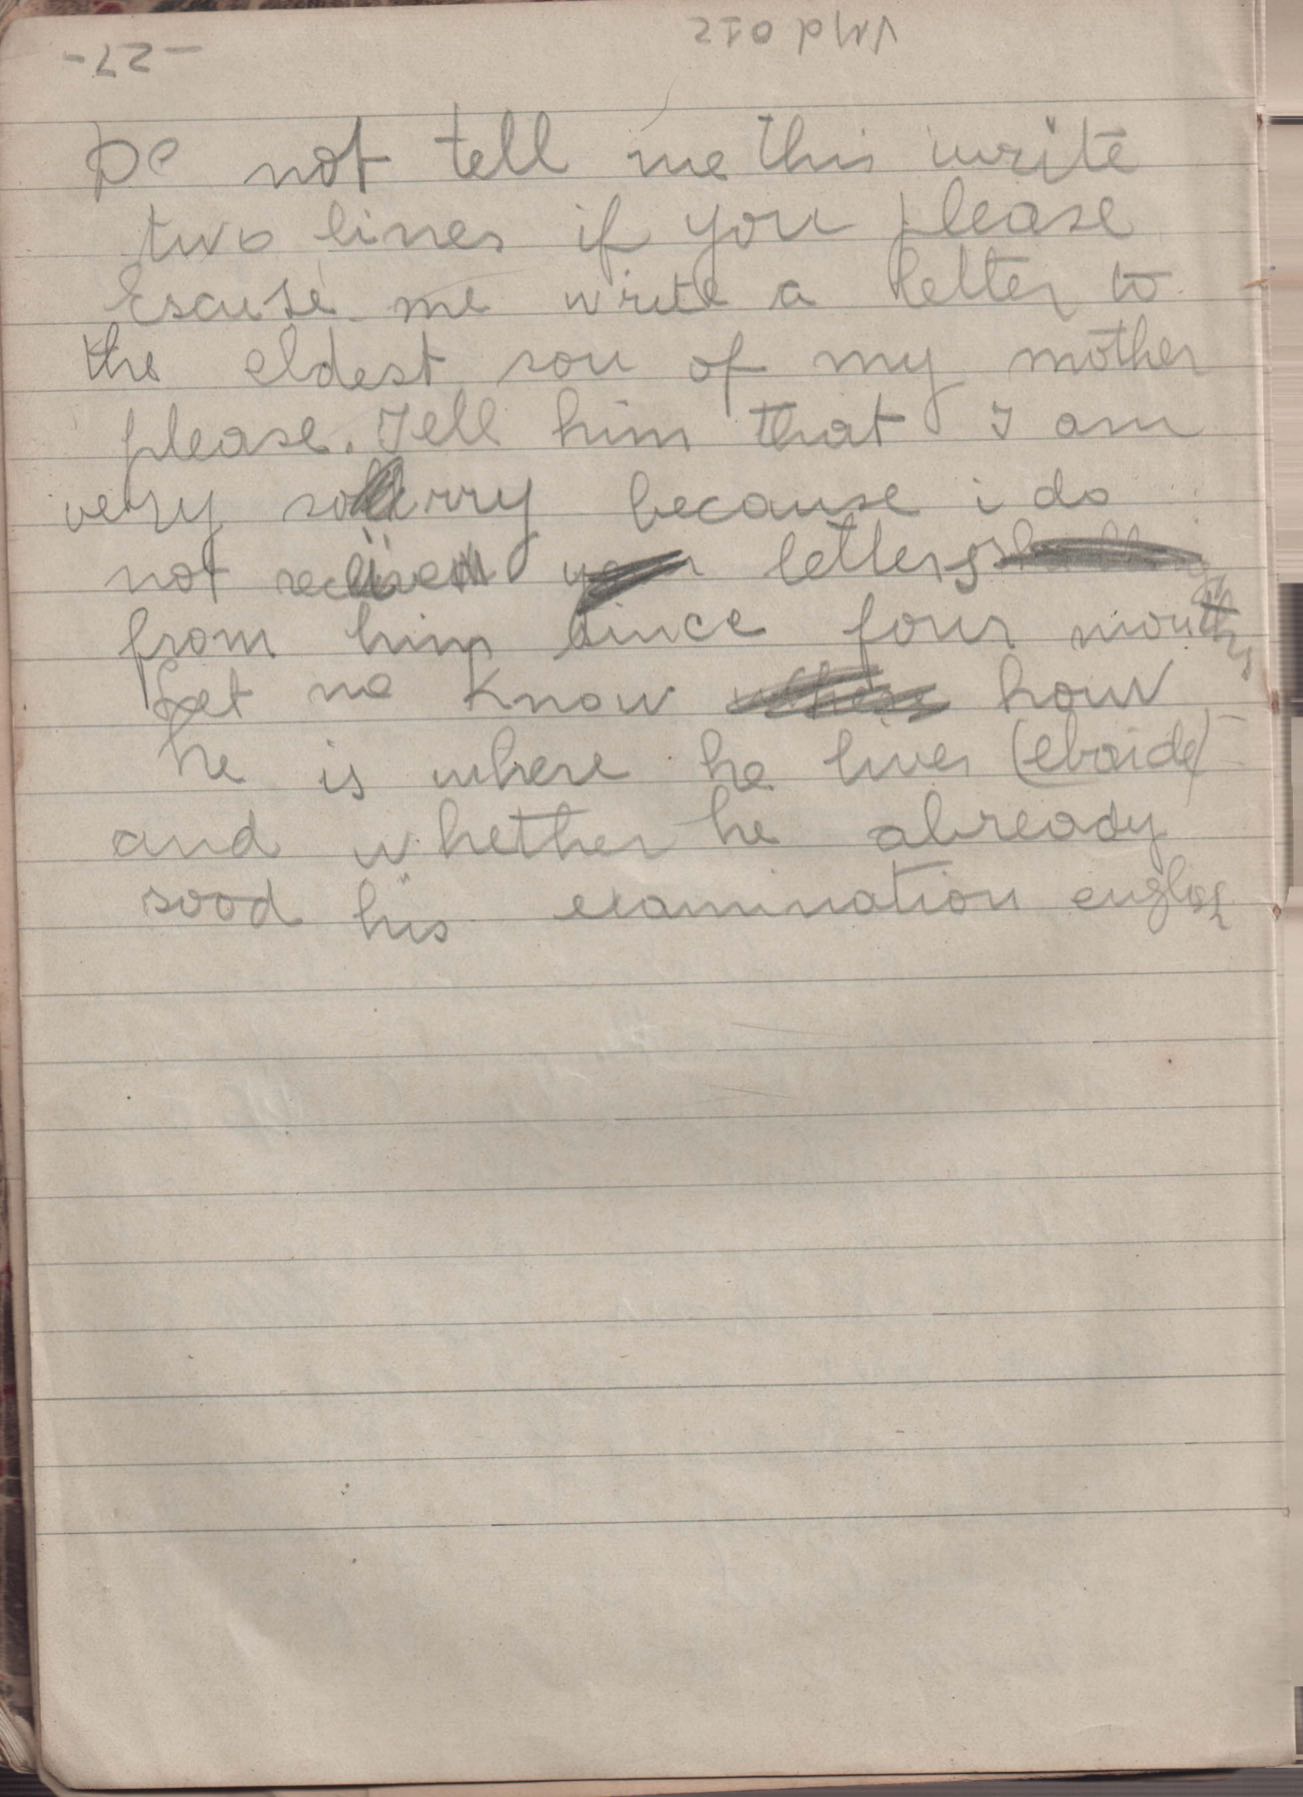 -27-
Do not tell me this write
two lines if you please
Escuse me write a letter to
the eldest son of my mother
please. Tell him that I am
very sorry because i do
not letters
from him since four months
Let me know how
he is where he lives (eboide)
and whether he already
sood his examination english